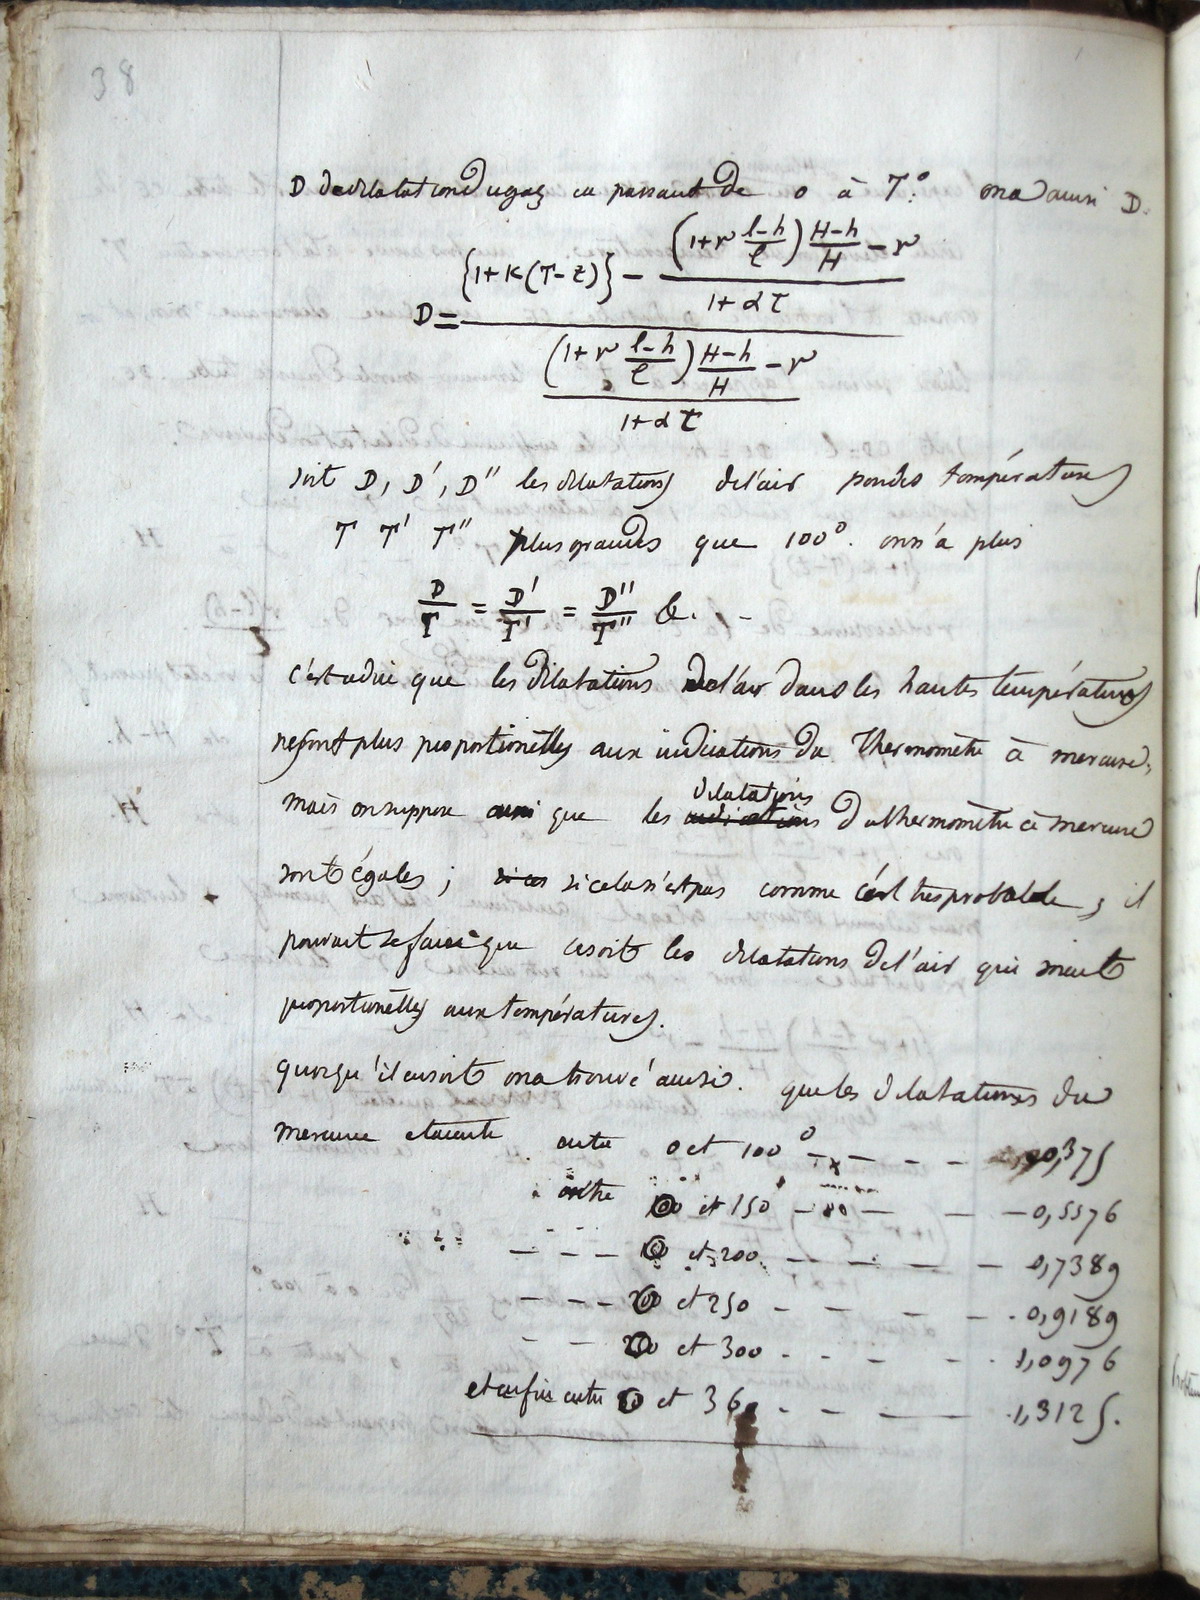 38
D de dilatation du gaz en passant de 0 à T°. on a aussi D.
D = {1+K(T-t)} - (1+r (l-h)/l) (H-h)/H - r / 1+ατ
(1+r (l-h)/l) (H-h)/H - r / 1+ατ
soit D, D', D'' les dilatations de l'air pour des températures
T T' T'' plus grandes que 100°. on n'a plus
D/T = D'/T' = D''/T'' &.
c'est adire que les dilatations de l'air dans les hautes températures
ne sont plus proportionelles aux indications du thermomètre à mercure,
mais on suppose aussi que les indications dilatations du thermomètre à mercure
sont égales ; si ces si cela n'est pas comme c'est tres probable, il
pourait se faire que ce soit les dilatations de l'air qui soient
proportionelles aux températures.
quoiqu'il en soit on a trouvé aussi. que les dilatations du
mercure etaient entre 0 et 100° - - - 0,375
entre et 150 - - - 0,5576
- - - et 200 - - - 0,7389
- - - et 250 - - - 0,9189
- - et 300 - - - 1,0976
et enfin entre et 36 - - - 1,3125.